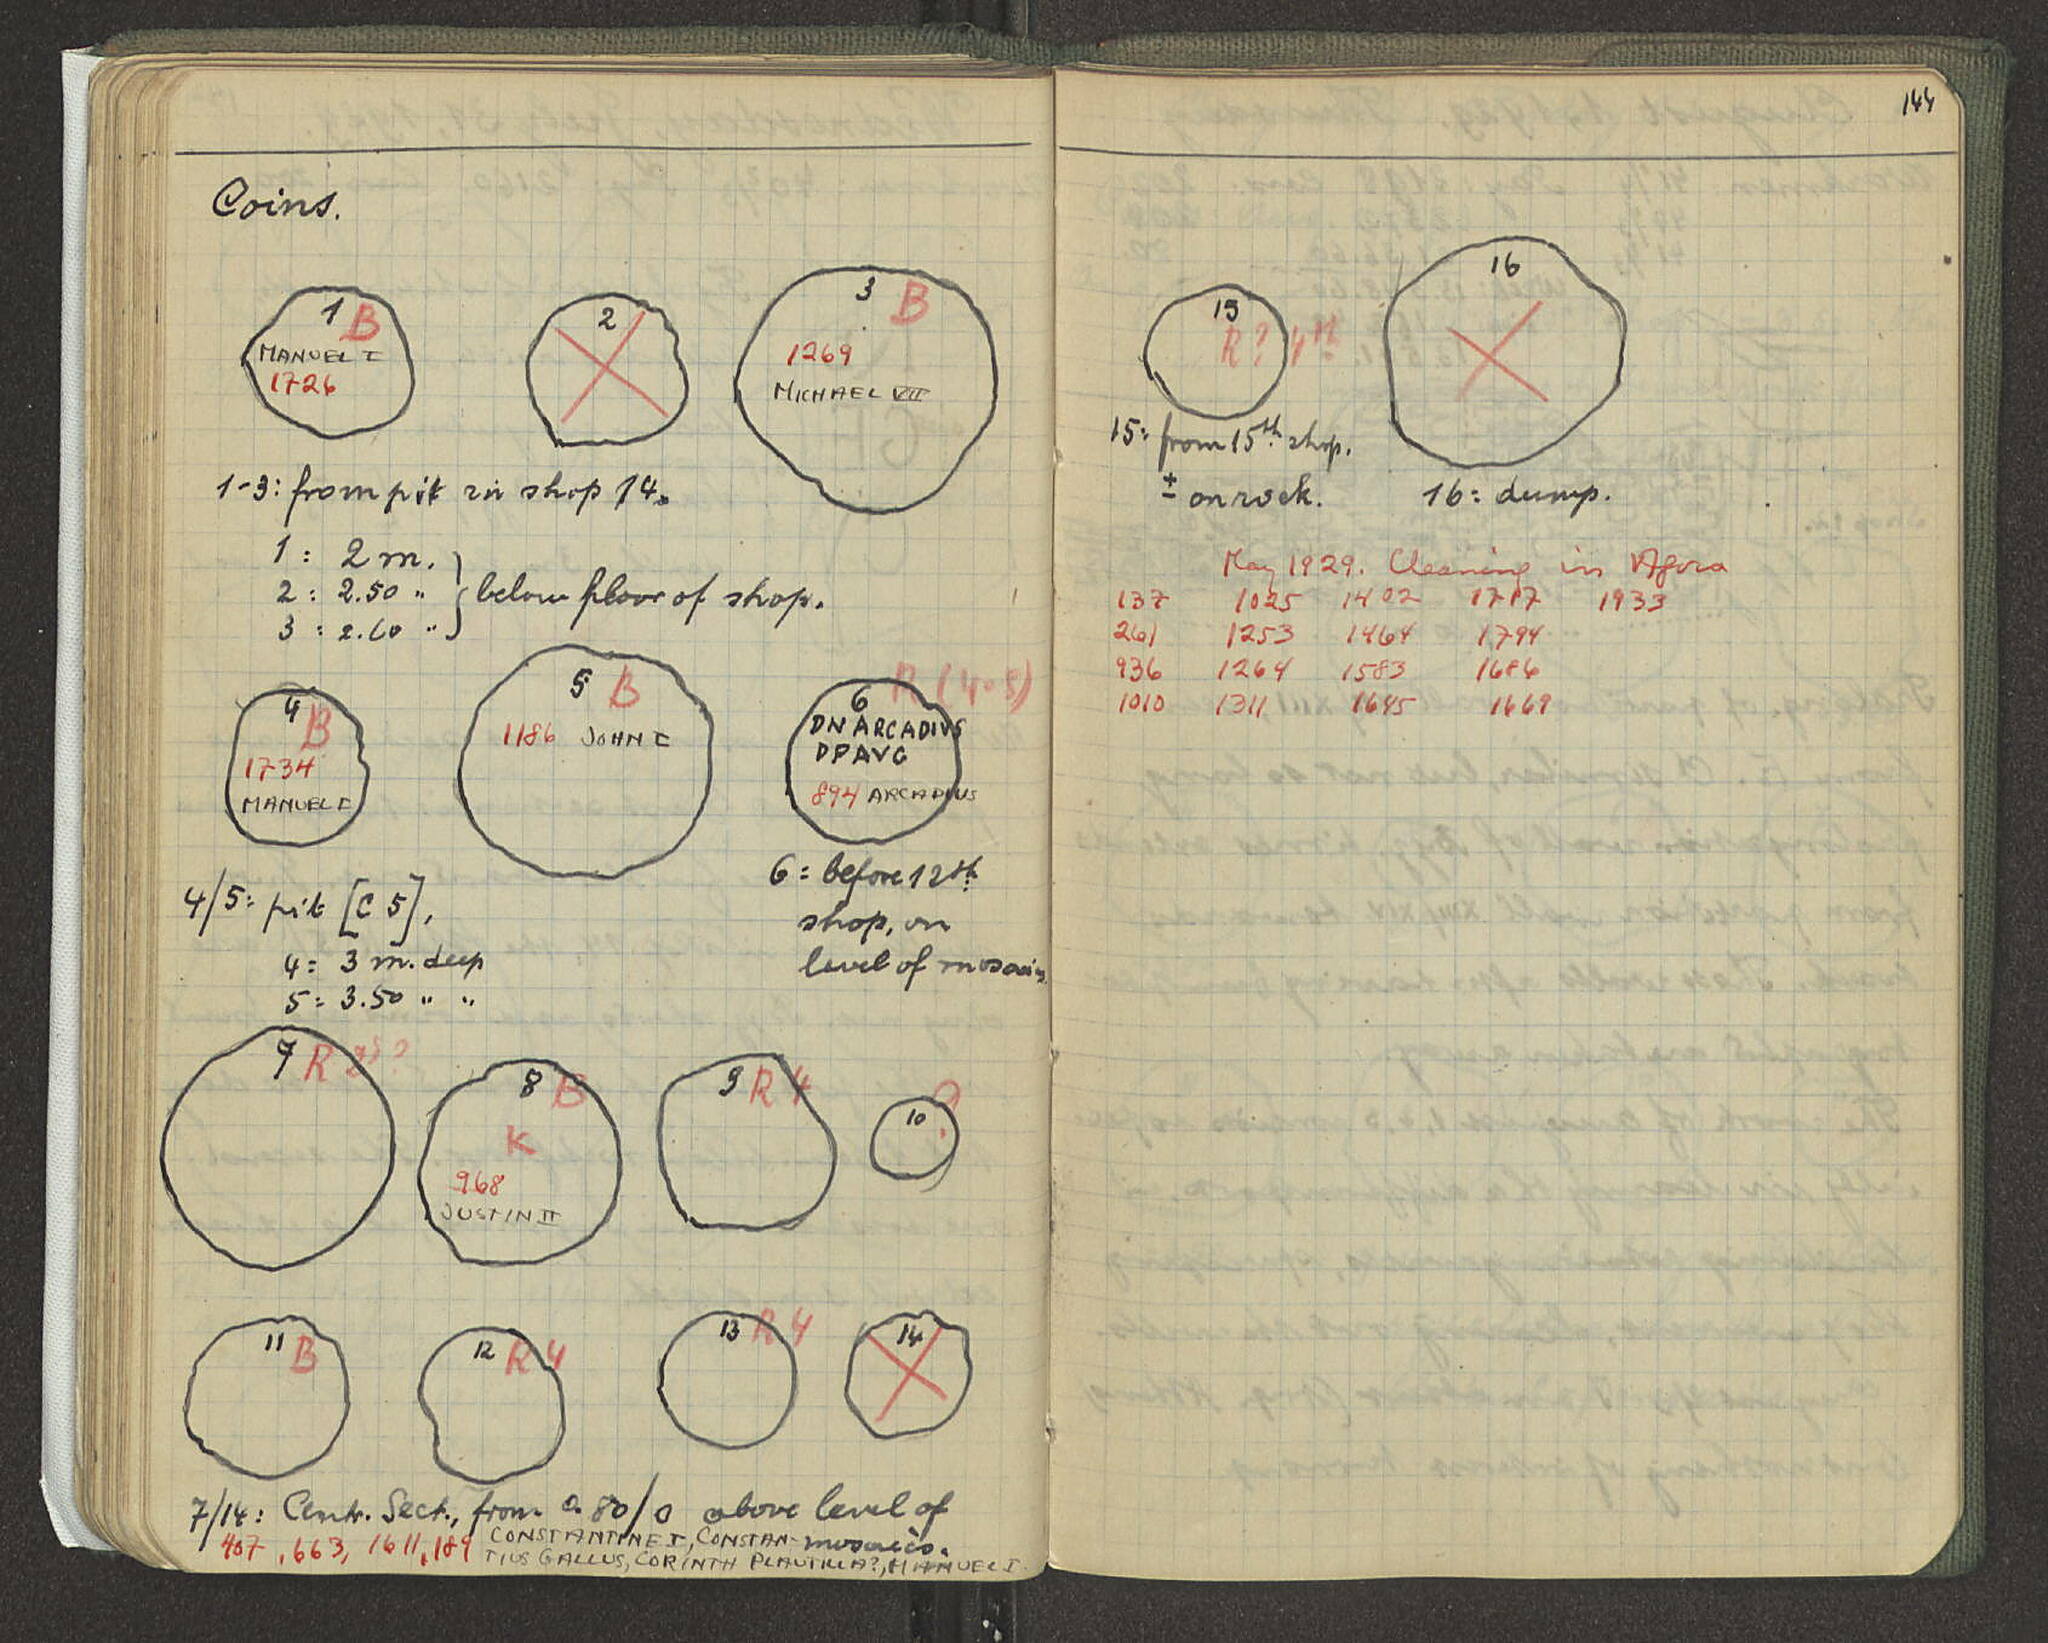 Coins.
1 B
MANUEL I
1726
2
3 B
1269
MICHAEL VII
1-3: from pit in shop 14.
1: 2 m.
2: 2.50 "
3: 2.60 "
below floor of shop.
4 B
1734
MANUEL I
5 B
1186 JOHN I
6 R (4-5)
DN ARCADIVS
DPAVG
894 ARCADIUS
4/5: pit [C 5],
4: 3 m. deep
5: 3.50 " "
6: before 12th
shop, on
level of mosaics
7 R ?
8 B
K
968
JUSTIN II
9 R 4
10 ?
11 B
12 R 4
13 R 4
14
7/14: Centr. Sect., from 0.80/0 above level of
mosaics.
407, 663, 1611, 189 CONSTANTINE I, CONSTAN-
TIUS GALLUS, CORINTH PLAUTILLA?, MANUEL I
144
15
R? 4th
16
15: from 15th shop.
± on rock.
16: dump.
May 1929. Cleaning in Agora
137 1025 1402 1717 1933
261 1253 1464 1794
936 1264 1583 1686
1010 1311 1645 1669